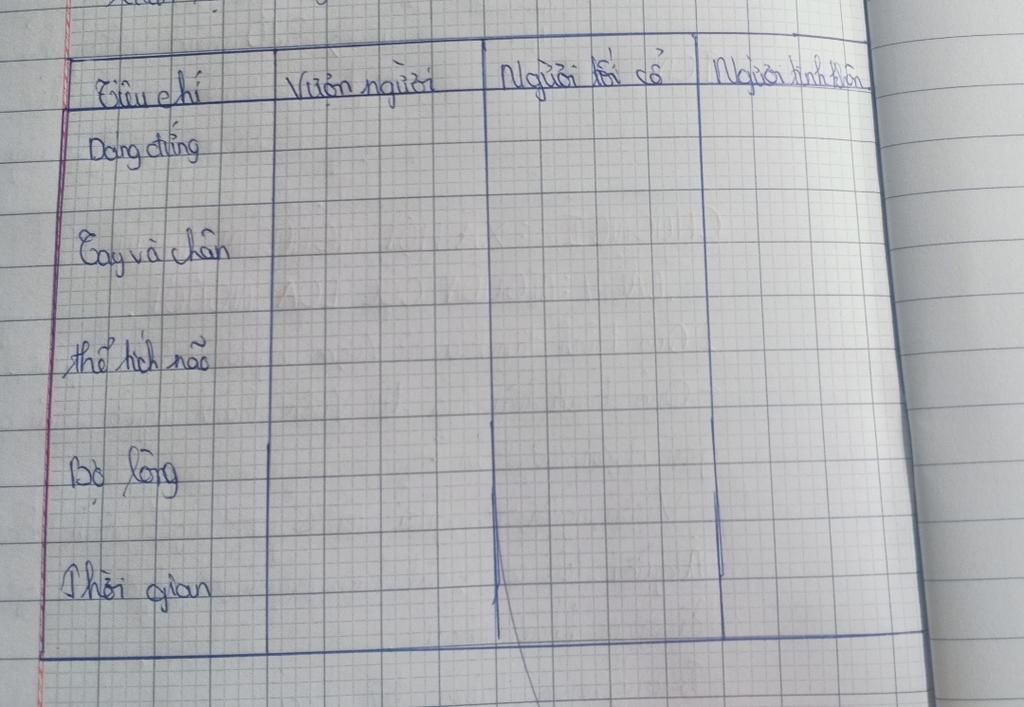 Tiêu chí Vượn người Người tối cổ Người tinh khôn
Dáng đứng
Tay và chân
Thể tích não
Bộ lông
Thời gian